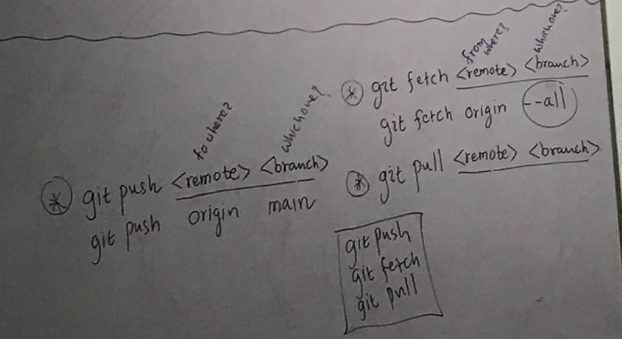 to where? which one?
* git push <remote> <branch>
git push origin main
from where? which one?
* git fetch <remote> <branch>
git fetch origin --all
* git pull <remote> <branch>
git push
git fetch
git pull